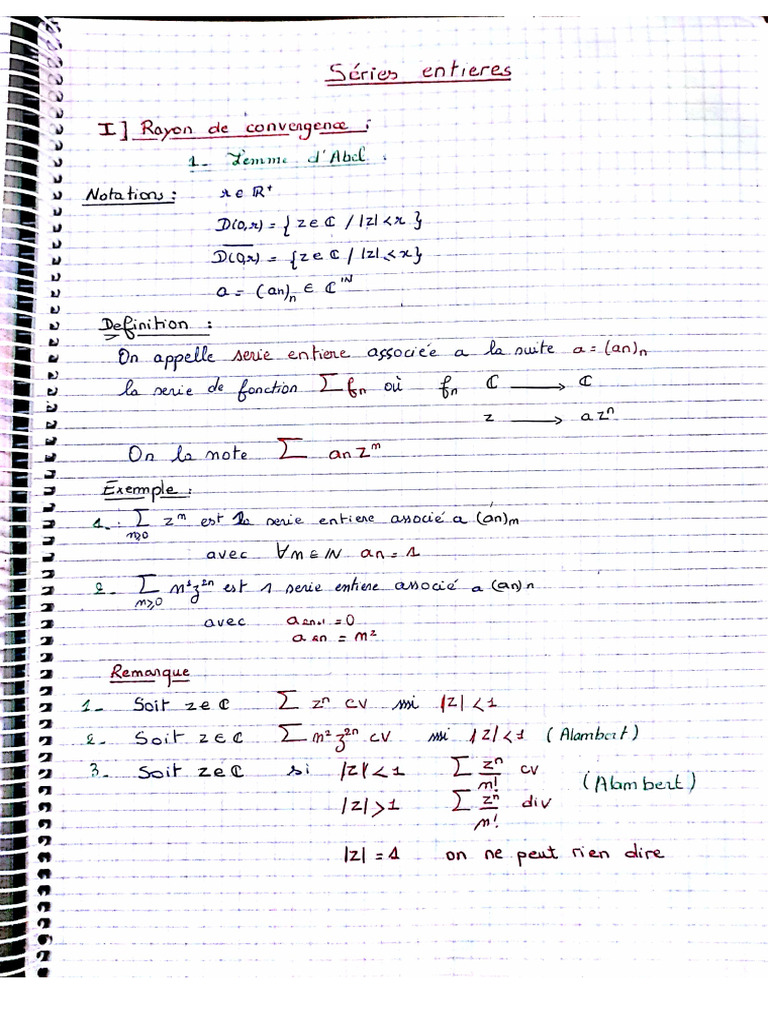 Séries entieres
I] Rayon de convergence :
1- Lemme d'Abel :
Notations : r ∈ ℝ⁺
D(0,r) = { z ∈ ℂ / |z| < r }
D̅(̅0̅,̅r̅)̅ = { z ∈ ℂ / |z| ≤ r }
a = (an)ₙ ∈ ℂ^ℕ
Definition :
On appelle serie entiere associée a la suite a = (an)ₙ
la serie de fonction ∑ fₙ où fₙ ℂ ⟶ ℂ
z ⟶ a zⁿ
On la note ∑ an zⁿ
Exemple :
1. ∑ zⁿ est la serie entiere associé a (an)ₙ
n≥0
avec ∀n ∈ ℕ an = 1
2- ∑ n²z²ⁿ est 1 serie entiere associé a (an)ₙ
n≥0
avec a₂ₙ₊₁ = 0
a₂ₙ = n²
Remarque
1- Soit z ∈ ℂ ∑ zⁿ cv ssi |z| < 1
2- Soit z ∈ ℂ ∑ n² z²ⁿ cv ssi |z| < 1 (Alambert)
3- Soit z ∈ ℂ si |z| < 1 ∑ zⁿ/n! cv
(Alambert)
|z| > 1 ∑ zⁿ/n! div
|z| = 1 on ne peut rien dire